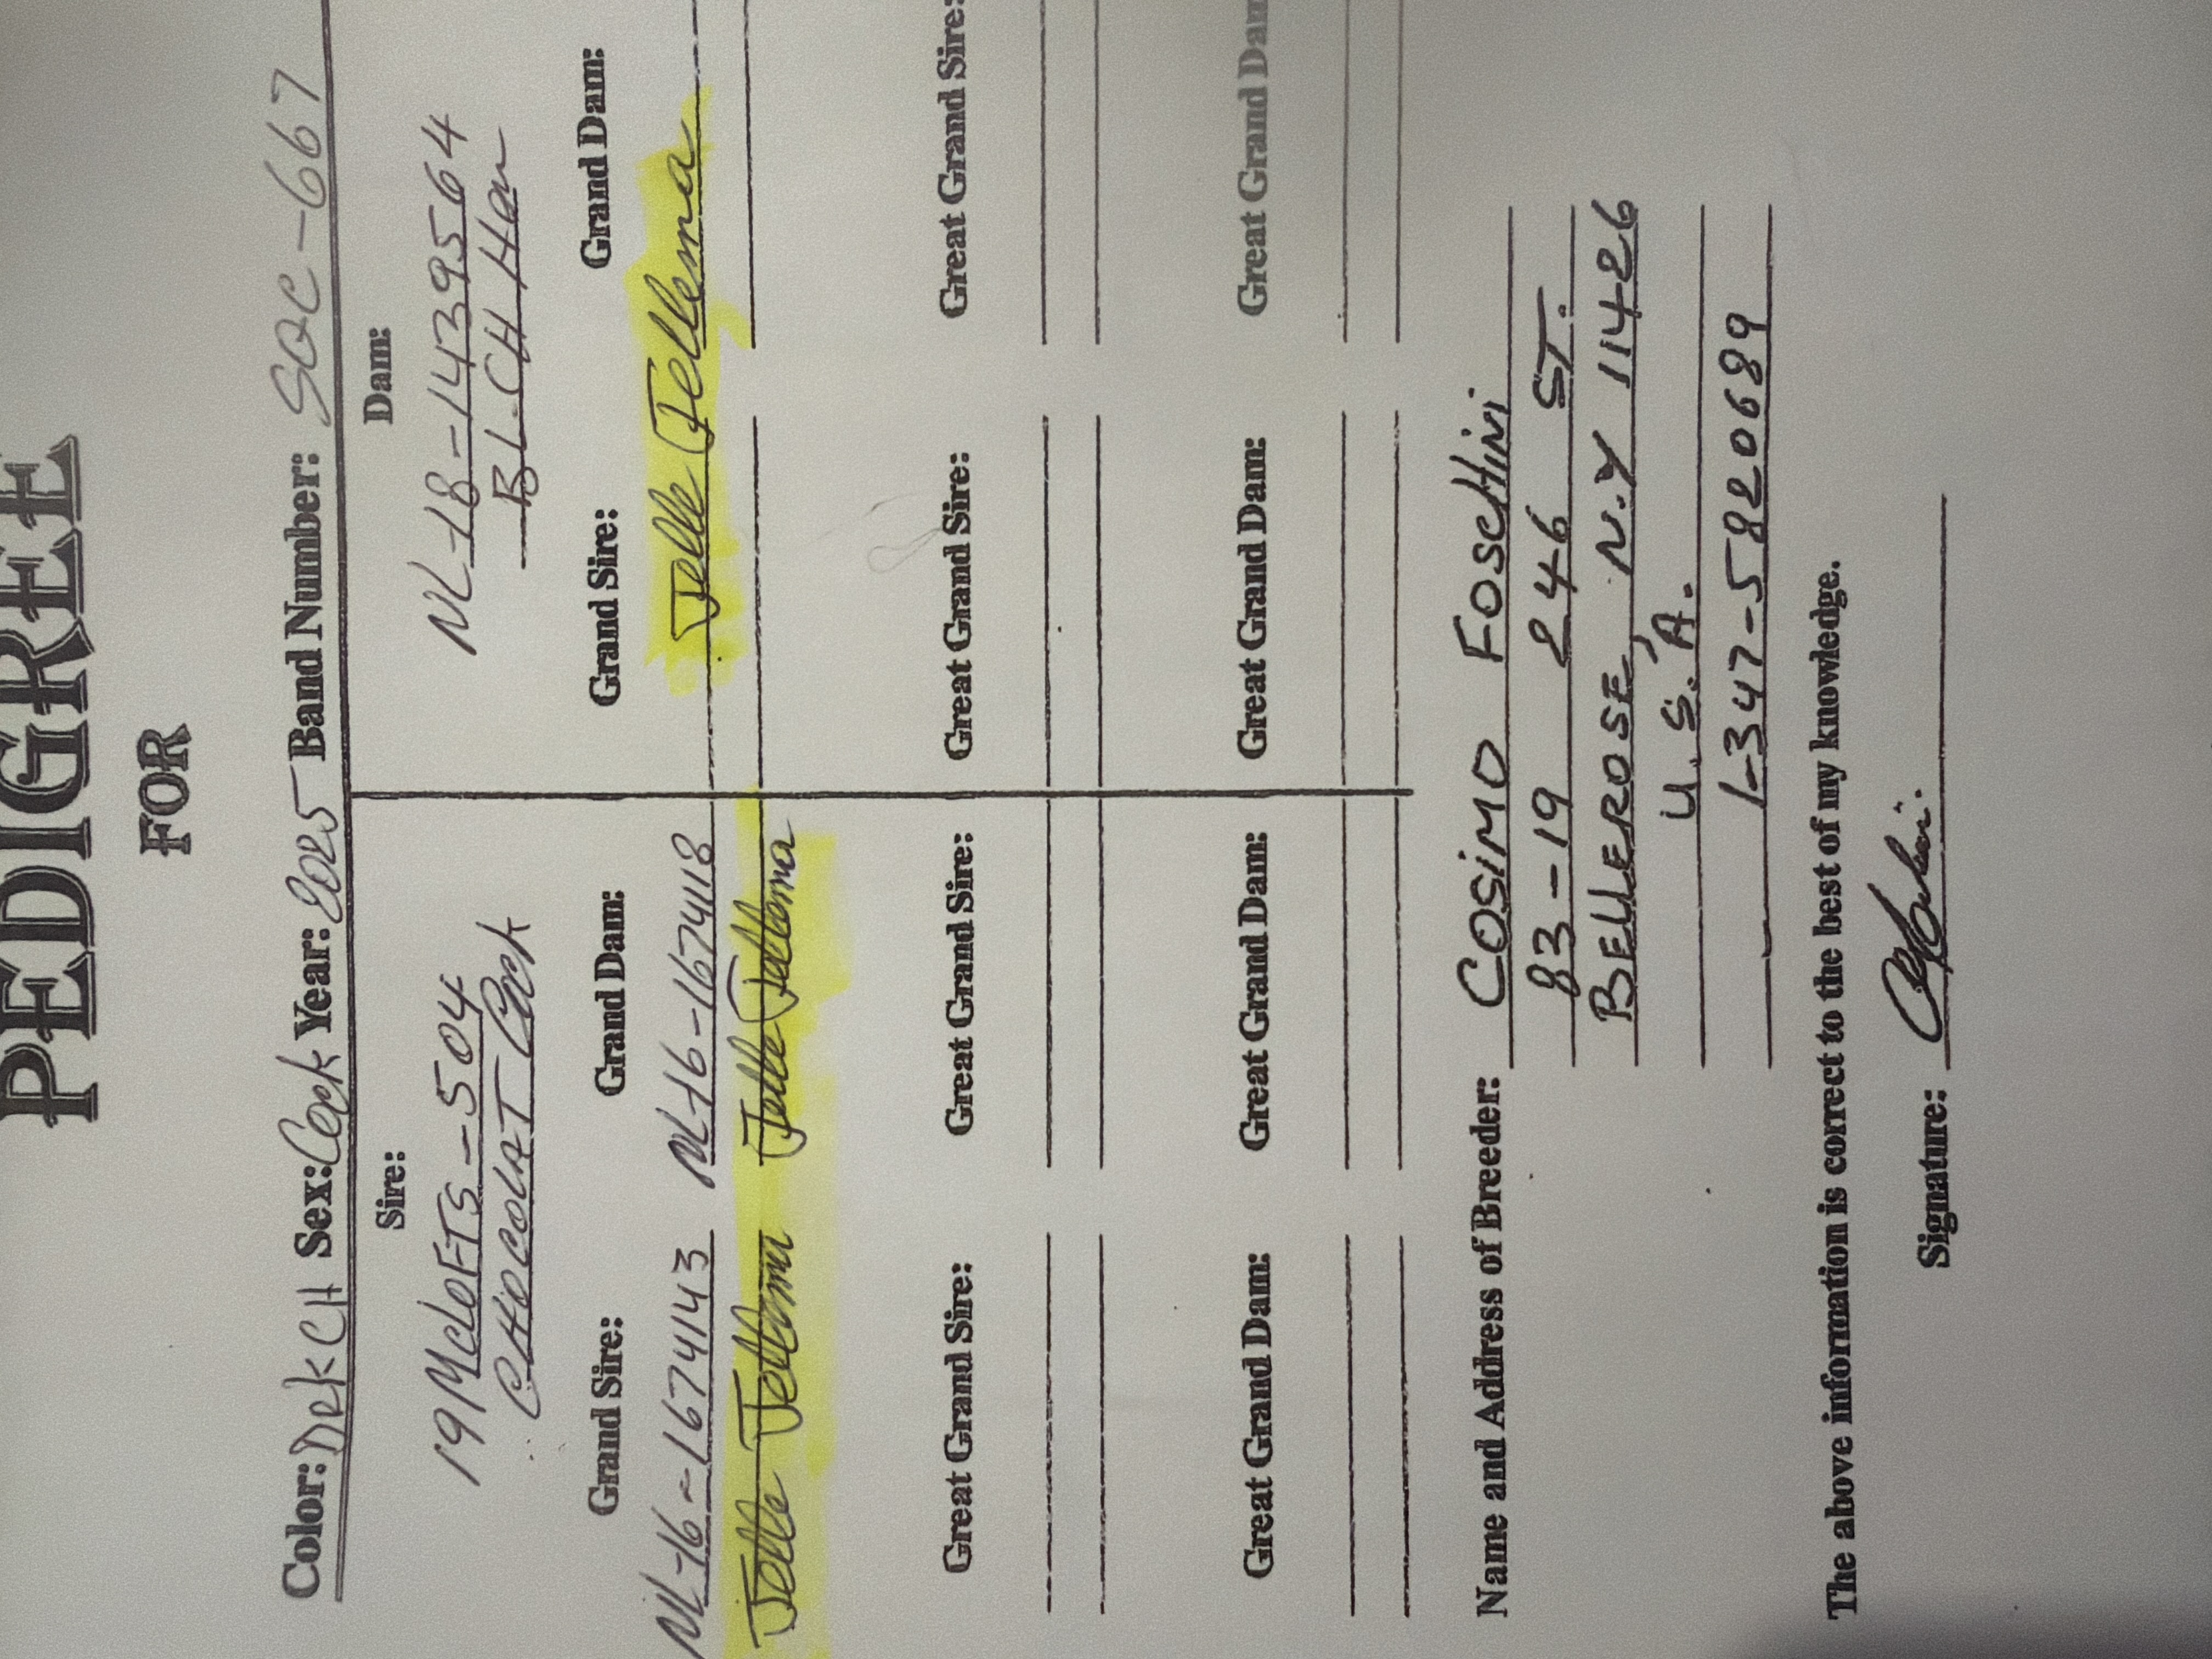 PEDIGREE
FOR
Color: Dek CH Sex: Cock Year: 2025 Band Number: SOC-667
Sire: Dam:
19 McLOFTS-504 NL-18-1439564
CHOCOLAT Cock BL-CH Hen
Grand Sire: Grand Dam: Grand Sire: Grand Dam:
NL-16-1674143 NL-16-1674118 Jelle Jellema
Jelle Jellema Jelle Jellema
Great Grand Sire: Great Grand Sire: Great Grand Sire: Great Grand Sire:
Great Grand Dam: Great Grand Dam: Great Grand Dam: Great Grand Dam
Name and Address of Breeder: COSIMO FOSCHINI
83-19 246 ST.
BELLEROSE, N.Y 11426
U.S.A.
1-347-5820689
The above information is correct to the best of my knowledge.
Signature: